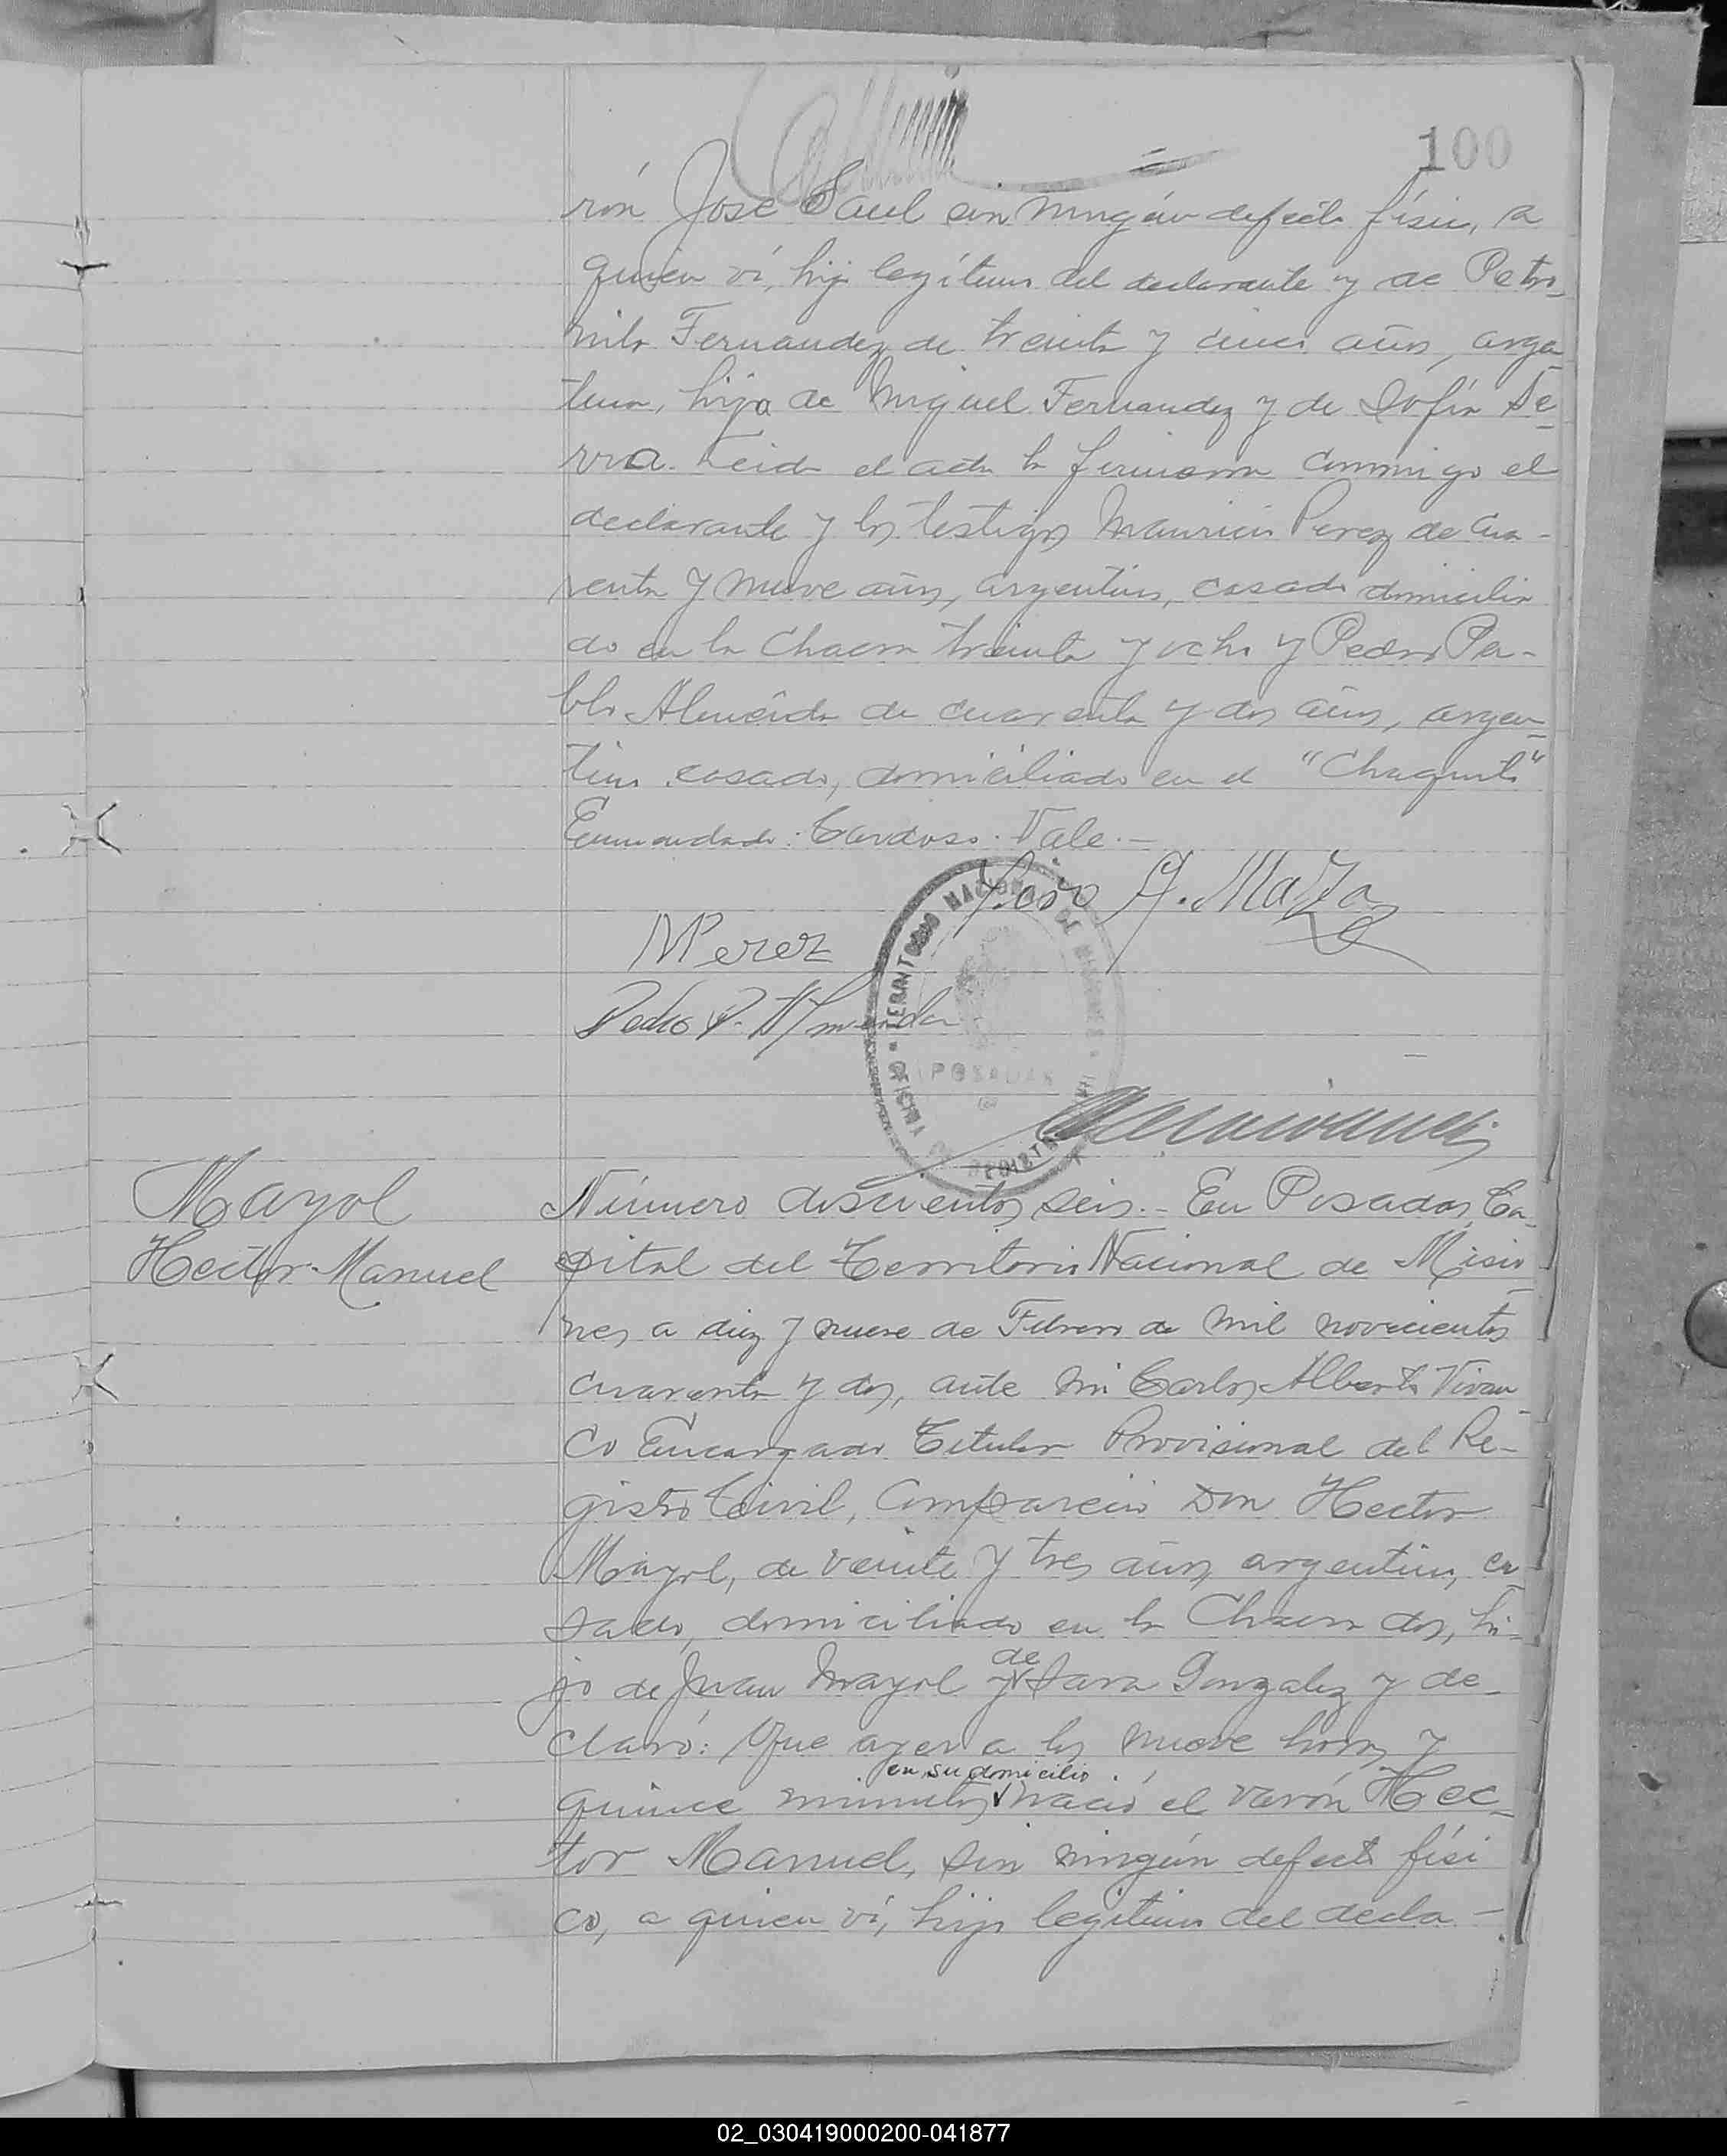 100
rón José Saul sin ningún defecto físico, a
quien ví, hijo legítimo del declarante y de Petro-
nila Fernandez de treinta y cinco años, argen-
tina, hija de Miguel Fernandez y de Sofía Se-
rra. Leida el acta la firmaron conmigo el
declarante y los testigos Mauricio Perez de cua-
renta y nueve años, argentino, casado domicilia
do en la Chacra treinta y ocho y Pedro Pa-
blo Almeida de cuarenta y dos años, argen-
tino casado, domiciliado en el "Chaquito"
Enmendado: Cardoso. Vale.—
A. Maza
MPerez
Pedro P. Almeida
POSADAS
Mayol
Hector Manuel
Número doscientos seis.- En Posadas, Ca-
pital del Territorio Nacional de Misio-
nes a diez y nueve de Febrero de mil novecientos
cuarenta y dos, ante mi Carlos Alberto Vivan-
co Encargado Titular Provisional del Re-
gistro Civil, Compareció Don Hector
Mayol, de veinte y tres años argentino, ca-
sado, domiciliado en la Chacra dos, hi-
jo de Juan Mayol y de Sara Gonzalez y de-
claró: Que ayer a las nueve horas y
quince minutos en su domicilio nació el varón Hec-
tor Manuel, sin ningún defecto físi
co, a quien ví, hijo legítimo del decla-
02_030419000200-041877